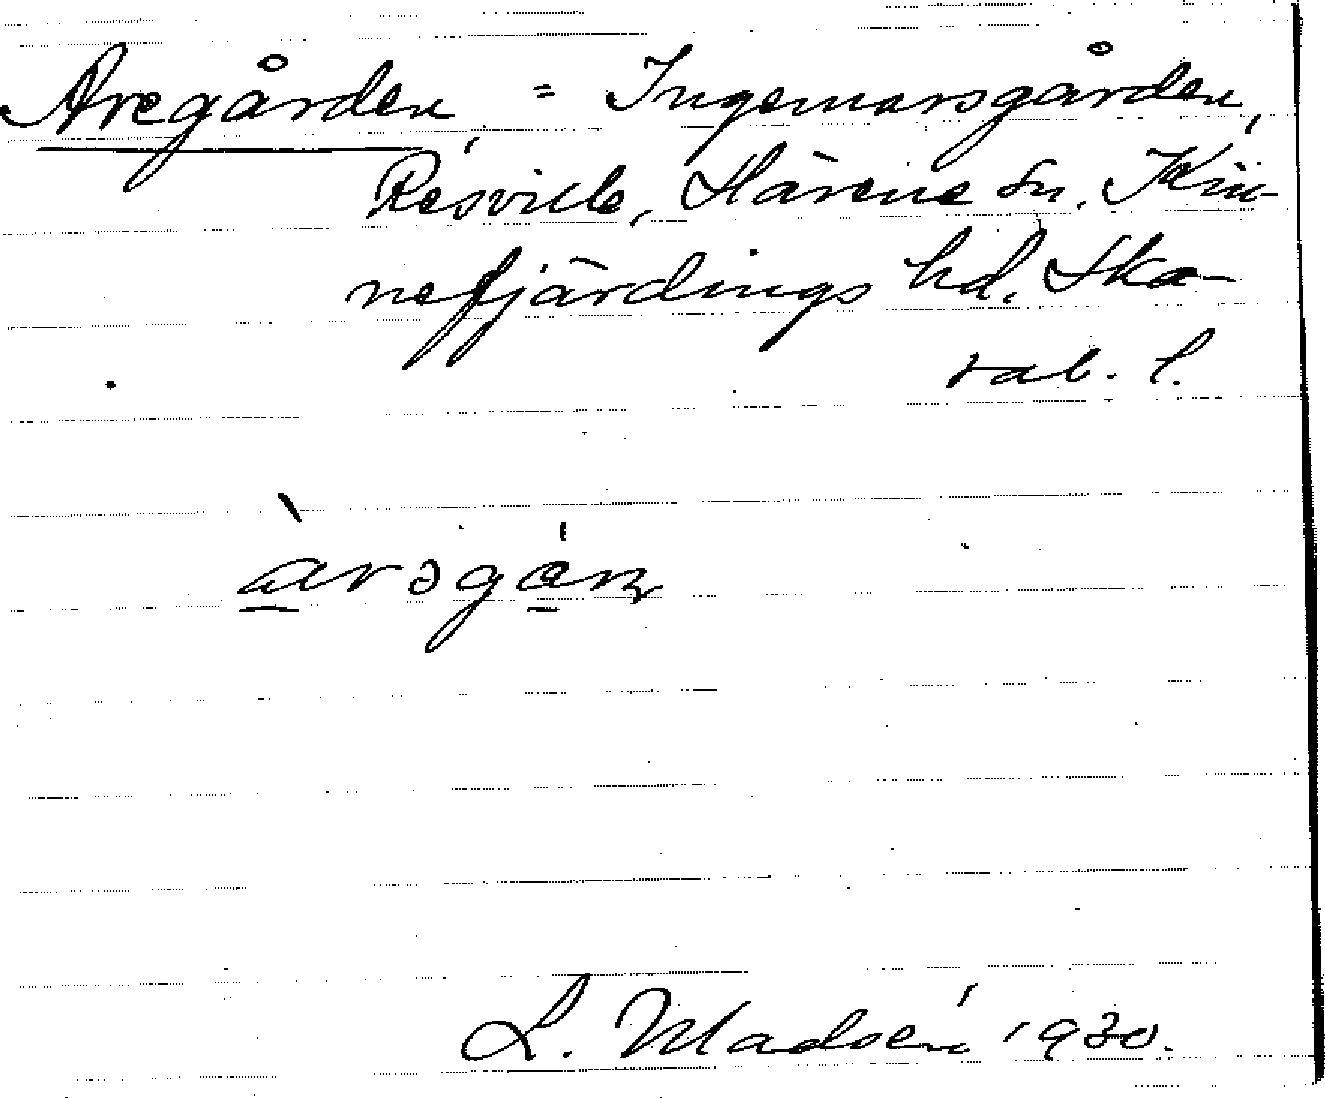 Aregården = Ingemarsgården,
Resville, Härene sn. Kin-
nefjärdings hd. Ska-
rab. l.
àrəgán
L. Madsén 1930.